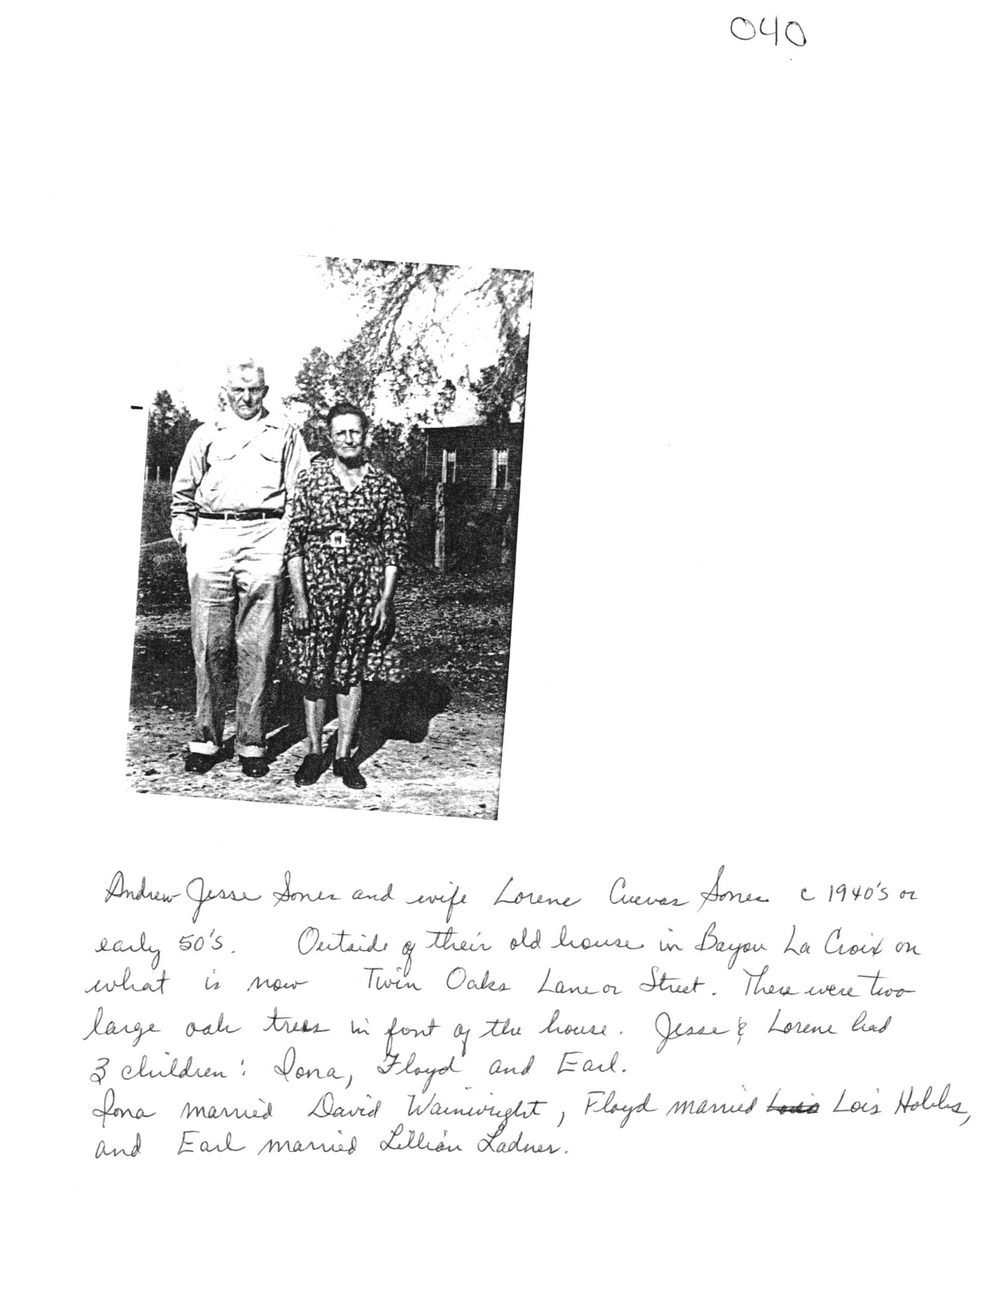 040
Andrew Jesse Sones and wife Lorene Cuevas Sones c 1940's or
early 50's. Outside of their old house in Bayou La Croix on
what is now Twin Oaks Lane or Street. There were two
large oak trees in font of the house. Jesse & Lorene had
3 children: Iona, Floyd and Earl.
Iona married David Wainwright, Floyd married Lois Lois Hobbs,
and Earl married Lillian Ladner.